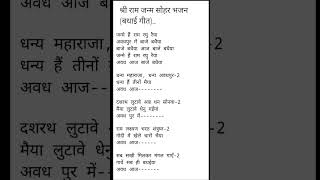 श्री राम जन्म सोहर भजन
(बधाई गीत)..
जन्मे हैं राम रघु रैया
अवधपुर में बाजे बधैया
बाजे बधैया आज बाजे बधैया
जन्मे हैं राम रघु रैया
अवध आज बाजे बधैया
धन्य महाराजा, धन्य अवधपुर-2
धन्य हैं तीनों मैया
अवध आज-------
दशरथ लुटावे अन्न धन सोनवा-2
मैया लुटावे धेनु गईया
अवध पुर में--------
राम लक्ष्मण भरत शत्रुघ्न-2
गोदी में खेले चारों भैया
अवध आज--------
सब सखी मिलकर मंगल गाएँ-2
गावे सब ही बधईया
अवध आज-------
धन्य महाराजा
धन्य हैं तीनों
अवध आज---
दशरथ लुटावे
मैया लुटावे धे
अवध पुर में--